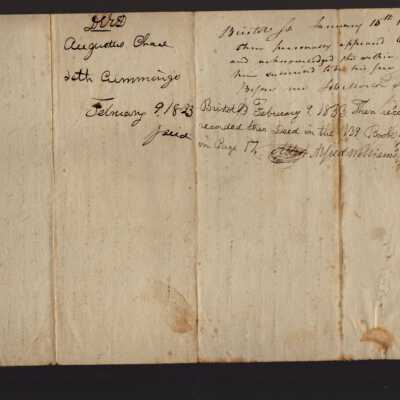 Deed
Augustus Chace
Seth Cummings
February 9, 1833
Bristol ss January 18th
then personally appeared
and acknowledged the within
Before me
Bristol ss February 9, 1833. Then rece
recorded this Deed in the 139 Book
in Page 17. Attest Alfred Williams